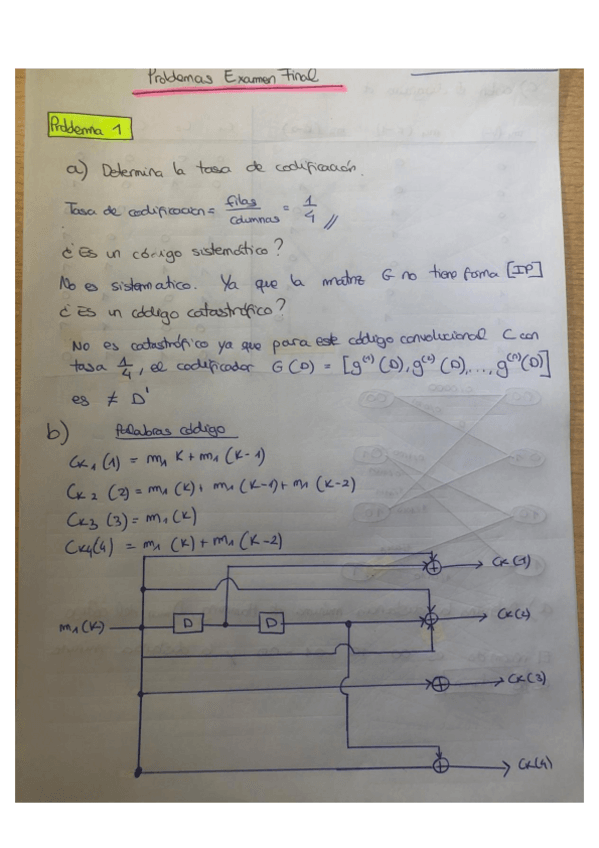 Problemas Examen Final
Problema 1
a) Determina la tasa de codificación.
Tasa de codificacion = filas/columnas = 1/4 //
¿Es un código sistemático?
No es sistematico. Ya que la matriz G no tiene forma [IP]
¿Es un código catastrófico?
No es catastrófico ya que para este código convolucional C con
tasa 1/4, el codificador G(D) = [g⁽¹⁾(D), g⁽²⁾(D), ..., g⁽ⁿ⁾(D)]
es ≠ D'
b) Palabras código
CK1 (1) = m1 K + m1 (K-1)
CK2 (2) = m1 (K) + m1 (K-1) + m1 (K-2)
CK3 (3) = m1 (K)
CK4(4) = m1 (K) + m1 (K-2)
CK(1)
m1(K) D D CK(2)
CK(3)
CK(4)